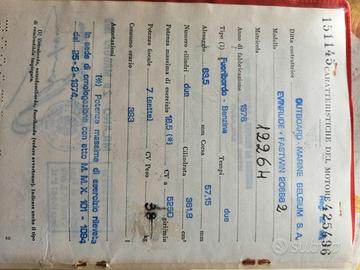 151145 CARATTERISTICHE DEL MOTORE 425496
Ditta costruttrice OUTBOARD MARINE BELGIUM S.A.
Modello EVINRUDE FASTWIN 20668 2
Matricola 1226H
Anno di fabbricazione 1976
Tipo (1) Fuoribordo - Benzina Tempi due
Alesaggio 63,5 mm Corsa 57,15 mm
Numero cilindri due Cilindrata 361,8 cm³
Potenza massima di esercizio 12,5 (*) CV a 5250 giri/min
Potenza fiscale 7 (sette) CV Peso 38 kg.
Consumo orario 393
Annotazioni
(*) Potenza massima di esercizio rilevata
in sede di omologazione con atto M.M.X. 101 - 1094
del 25-2-1974.
subito.it